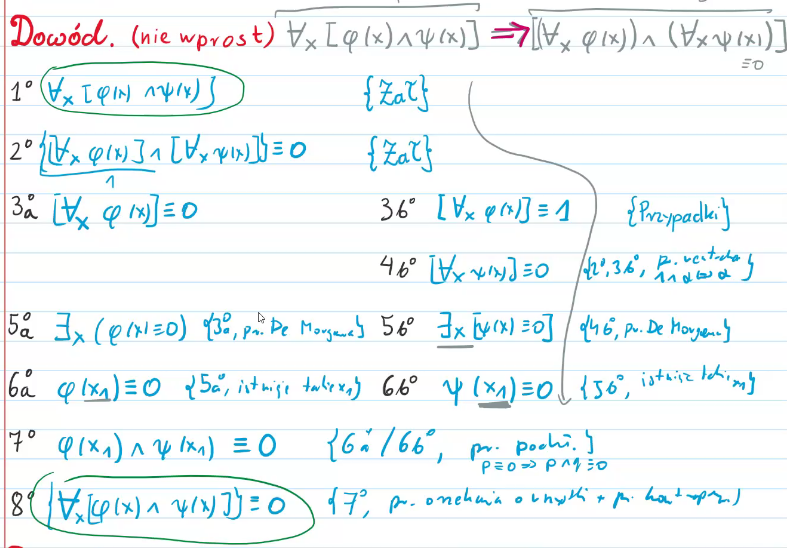 Dowód. (nie wprost) ∀x [φ(x) ∧ ψ(x)] ⟹ [(∀x φ(x)) ∧ (∀x ψ(x))]
≡0
1° ∀x [φ(x) ∧ ψ(x)] {Zał}
2° {[∀x φ(x)] ∧ [∀x ψ(x)]} ≡ 0 {Zał}
1
3a° [∀x φ(x)] ≡ 0 3b° [∀x φ(x)] ≡ 1 {Przypadki}
4b° [∀x ψ(x)] ≡ 0 {2°, 3b°, pr.
1∧α⟺α}
5a° ∃x (φ(x) ≡ 0) {3a°, pr. De Morgana} 5b° ∃x [ψ(x) ≡ 0] {4b°, pr. De Morgana}
6a° φ(x₁) ≡ 0 {5a°, istnieje takie x₁} 6b° ψ(x₁) ≡ 0 {5b°, istnieje takie x₁}
7° φ(x₁) ∧ ψ(x₁) ≡ 0 {6a°/6b°, pr. pochł.}
p≡0 ⟹ p∧q≡0
8° {∀x [φ(x) ∧ ψ(x)]} ≡ 0 {7°, pr.